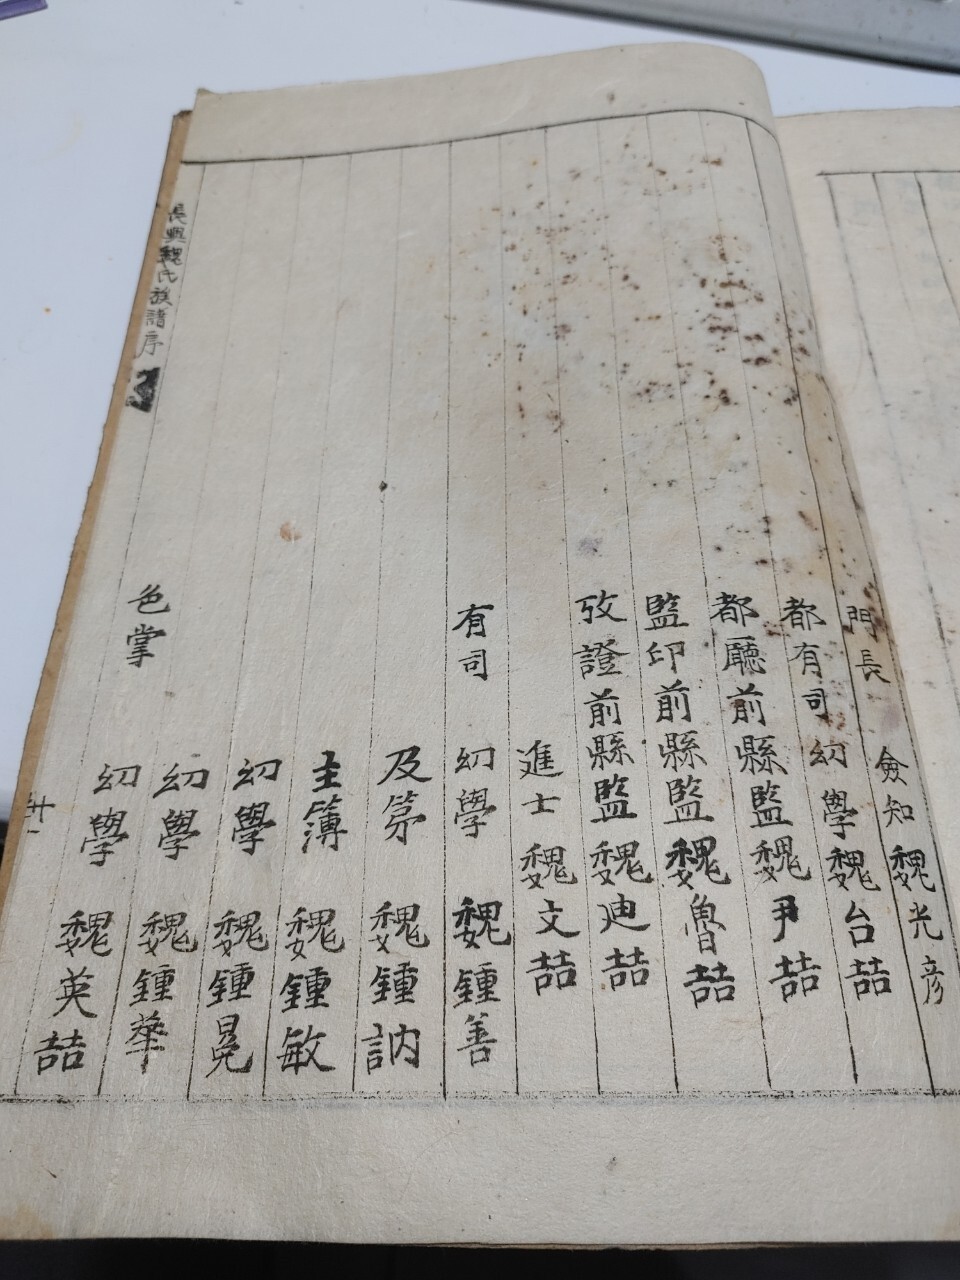 門長 僉知 魏光彦
都有司 幼學 魏台喆
都廳 前縣監 魏尹喆
監印 前縣監 魏魯喆
攷證 前縣監 魏迪喆
進士 魏文喆
有司 幼學 魏鍾善
及第 魏鍾訥
主簿 魏鍾敏
幼學 魏鍾冕
幼學 魏鍾華
色掌 幼學 魏英喆
長興魏氏族譜序